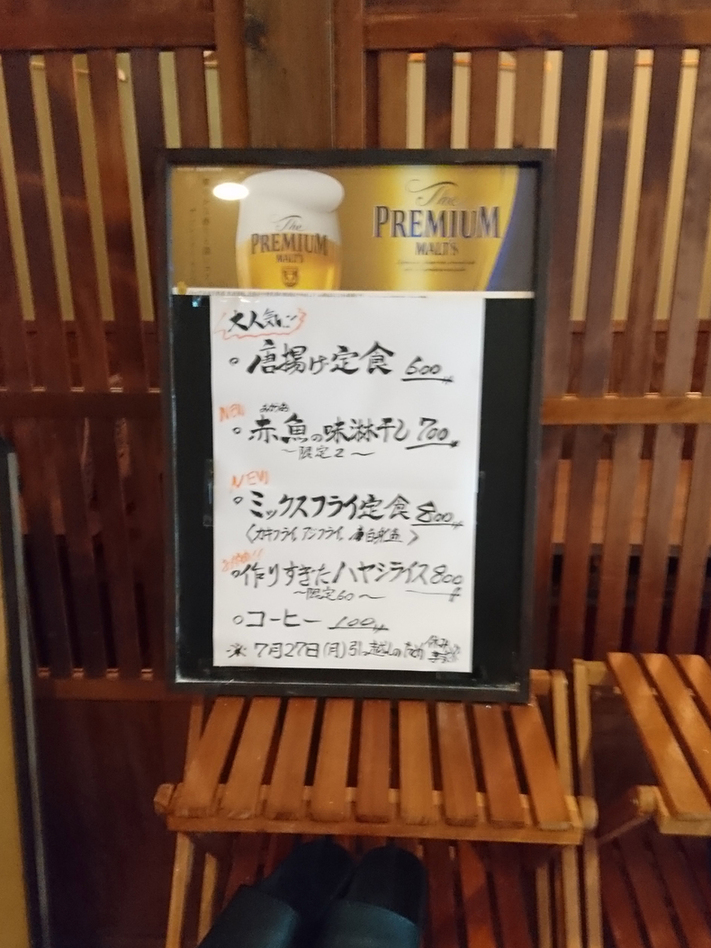 The
PREMIUM
MALT'S
The
PREMIUM
MALT'S
大人気!
唐揚げ定食 600
NEW
赤魚の味淋干し 700
〜限定2〜
NEW
ミックスフライ定食 800
〈カキフライ, アジフライ,
作りすぎたハヤシライス 800
〜限定60〜
コーヒー 100
※ 7月27日(月)引っ越しのため 休み